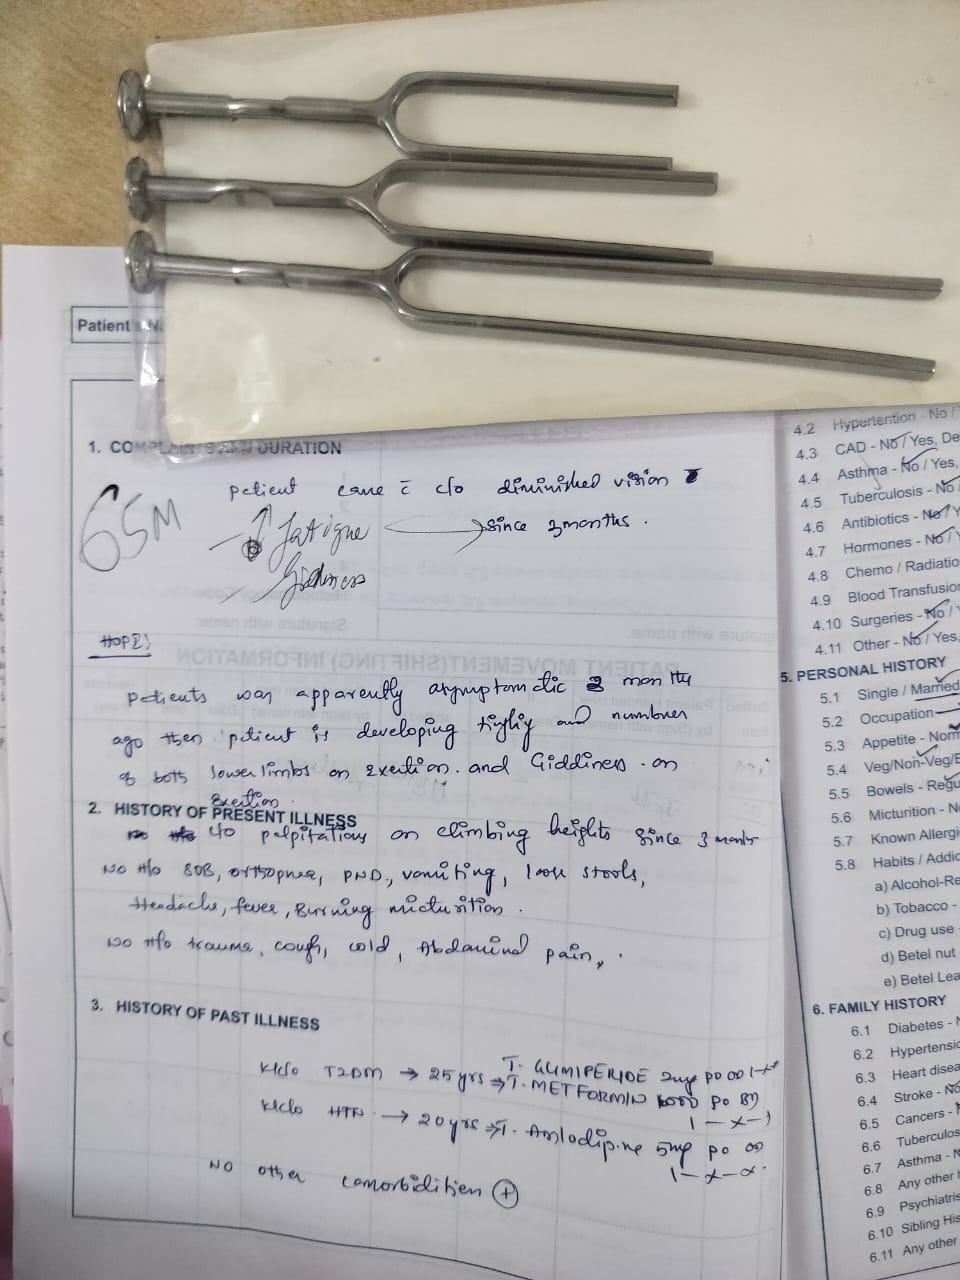 Patient
1. COMPLAINTS AND DURATION
65M
patient came c̄ c/o diminished vision
since 3 months.
↑ fatigue
Giddiness
HOPI:
patients was apparently asymptomatic 3 months
ago then patient is developing tingling and numbness
of both lower limbs on exertion. and Giddiness. on
Exertion.
2. HISTORY OF PRESENT ILLNESS
c/o palpitations on climbing heights since 3 months
No H/o SOB, orthopnea, PND, vomiting, loose stools,
Headache, fever, Burning micturition.
No H/o trauma, cough, cold, Abdominal pain,
3. HISTORY OF PAST ILLNESS
K/c/o T2DM → 25 yrs → T. GLIMIPERIDE 2mg PO OD 1-x-x
T. METFORMIN 1000 PO BD
1-x-1
K/c/o HTN → 20 yrs → T. Amlodipine 5mg PO OD
1-x-x.
No other comorbidities (+)
4.2 Hypertention - No /
4.3 CAD - No / Yes, De
4.4 Asthma - No / Yes,
4.5 Tuberculosis - No
4.6 Antibiotics - No / Y
4.7 Hormones - No / Y
4.8 Chemo / Radiatio
4.9 Blood Transfusion
4.10 Surgeries - No / Y
4.11 Other - No / Yes,
5. PERSONAL HISTORY
5.1 Single / Married
5.2 Occupation
5.3 Appetite - Norm
5.4 Veg/Non-Veg/E
5.5 Bowels - Regu
5.6 Micturition - N
5.7 Known Allergi
5.8 Habits / Addic
a) Alcohol-Re
b) Tobacco -
c) Drug use -
d) Betel nut
e) Betel Lea
6. FAMILY HISTORY
6.1 Diabetes - N
6.2 Hypertensio
6.3 Heart disea
6.4 Stroke - No
6.5 Cancers - N
6.6 Tuberculos
6.7 Asthma - N
6.8 Any other
6.9 Psychiatris
6.10 Sibling His
6.11 Any other